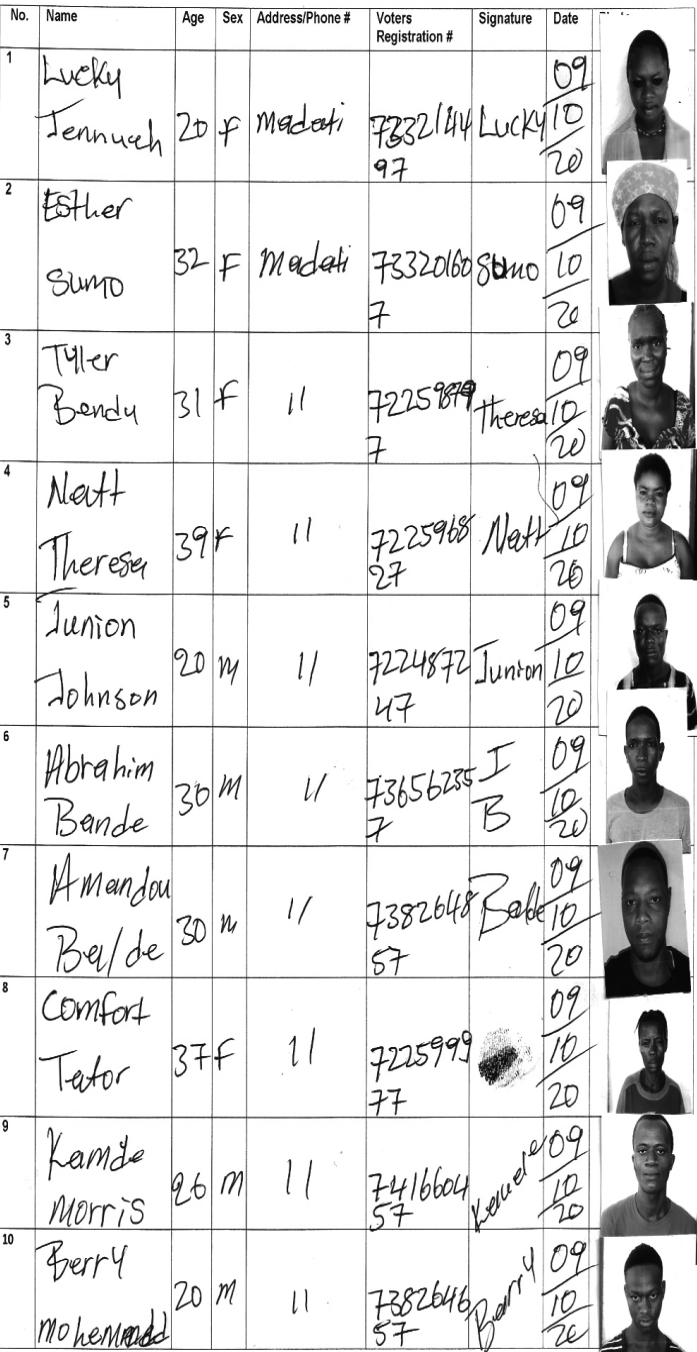 No. Name Age Sex Address/Phone # Voters Registration # Signature Date
1 Lucky Jennueh 20 F Madati 7332144 97 Lucky 09/10/20
2 Esther Sumo 32 F Madati 73320160 7 Sumo 09/10/20
3 Tyler Bendu 31 F 11 72259879 7 Theresa 09/10/20
4 Natt Theresa 39 F 11 7225968 27 Natt 09/10/20
5 Junion Johnson 20 m 11 7224872 47 Junion 09/10/20
6 Abrahim Bande 30 m 11 73656235 7 I B 09/10/20
7 Amandou Balde 30 m 11 7382648 57 Balde 09/10/20
8 Comfort Tator 37 F 11 7225999 77 09/10/20
9 Kamde Morris 26 m 11 7416604 57 09/10/20
10 Berry 20 m 11 7382646 57 Barry 09/10/20